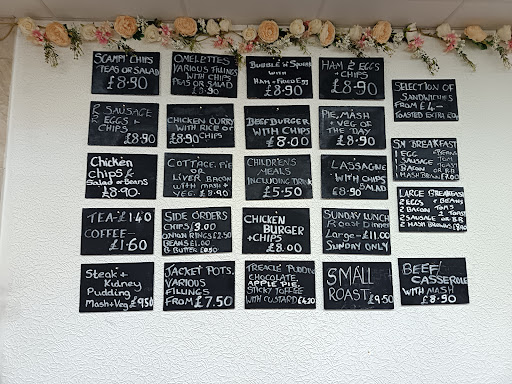 SCAMPI CHIPS
PEAS OR SALAD
£8.90
OMELETTES
VARIOUS FILLINGS
WITH CHIPS
PEAS OR SALAD
£8.90
BUBBLE 'N' SQUEAK
WITH
HAM + FRIED EGG
£8.90
HAM 2 EGGS
+ CHIPS
£8.90
SELECTION OF
SANDWICHES
FROM £4-
TOASTED EXTRA
2 SAUSAGE
2 EGGS +
CHIPS
£8.90
CHICKEN CURRY
WITH RICE or
CHIPS
£8.90
BEEFBURGER
WITH CHIPS
£8.00
PIE, MASH
+ VEG OF
THE DAY
£8.90
SM BREAKFAST
1 EGG BEANS
1 SAUSAGE TOM
1 BACON TOAST
1 MASH BROWN £7.00
Chicken
chips &
Salad or Beans
£8.90
COTTAGE PIE
OR
LIVER BACON
WITH MASH +
VEG. £8.90
CHILDREN'S
MEALS
INCLUDING DRINK
£5.50
LASSAGNE
WITH CHIPS
SALAD
£8.90
LARGE BREAKFAST
2 EGGS + BEANS
2 BACON TOMS
2 TOAST
2 SAUSAGE OR B.R.
2 HASH BROWNS
TEA - £1.40
COFFEE -
£1.60
SIDE ORDERS
CHIPS £3.00
ONION RINGS £2.50
BEANS £1.00
B BUTTER £0.50
CHICKEN
BURGER
+ CHIPS
£8.00
SUNDAY LUNCH
Roast Dinner
Large - £11.00
SUNDAY ONLY
Steak +
Kidney
Pudding
Mash + Veg £9.50
JACKET POTS.
VARIOUS
FILLINGS
FROM £7.50
TREACLE PUDDING
CHOCOLATE
APPLE PIE
STICKY TOFFEE
WITH CUSTARD £4.20
SMALL
ROAST £9.50
BEEF
CASSEROLE
WITH MASH
£8.90